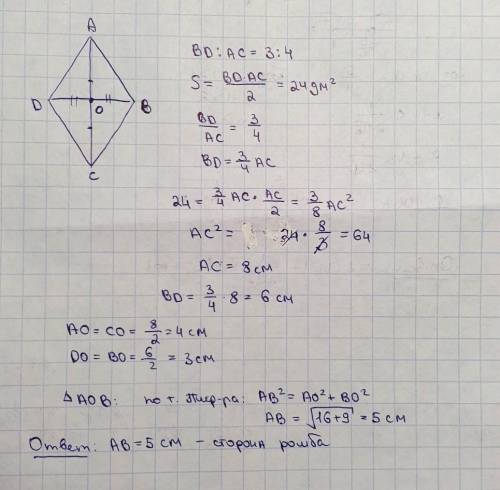 A
D O B
C
BD : AC = 3 : 4
S = BD·AC/2 = 24 дм²
BD/AC = 3/4
BD = 3/4 AC
24 = 3/4 AC · AC/2 = 3/8 AC²
AC² = 24 · 8/3 = 64
AC = 8 см
BD = 3/4 · 8 = 6 см
AO = CO = 8/2 = 4 см
DO = BO = 6/2 = 3 см
△ AOB: по т. Пиф-ра: AB² = AO² + BO²
AB = √16+9 = 5 см
Ответ: AB = 5 см – сторона ромба